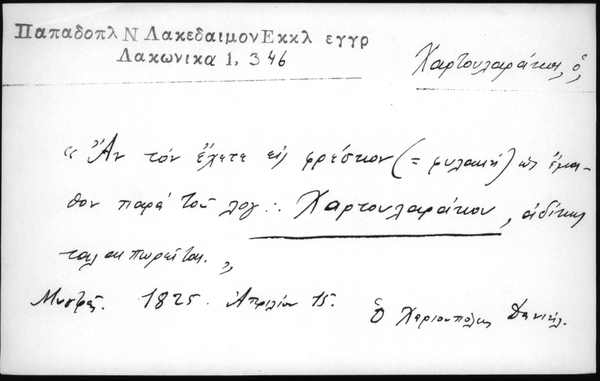 Παπαδοπλ Ν ΛακεδαιμονΕκκλ εγγρ
Λακωνικα 1, 346
Χαρτουλαράκος, ὁ,
« Ἂν τὸν ἔχετε εἰς φρέσκον (= φυλακή) ὡς ἔμα-
θον παρά τοῦ λογ: Χαρτουλαράκου, ἀδίκως
ταλαιπωρεῖται. »
Μυστρᾶς. 1825. Ἀπριλίου 15.
Ὁ Χαριουπόλεως Δανιήλ.